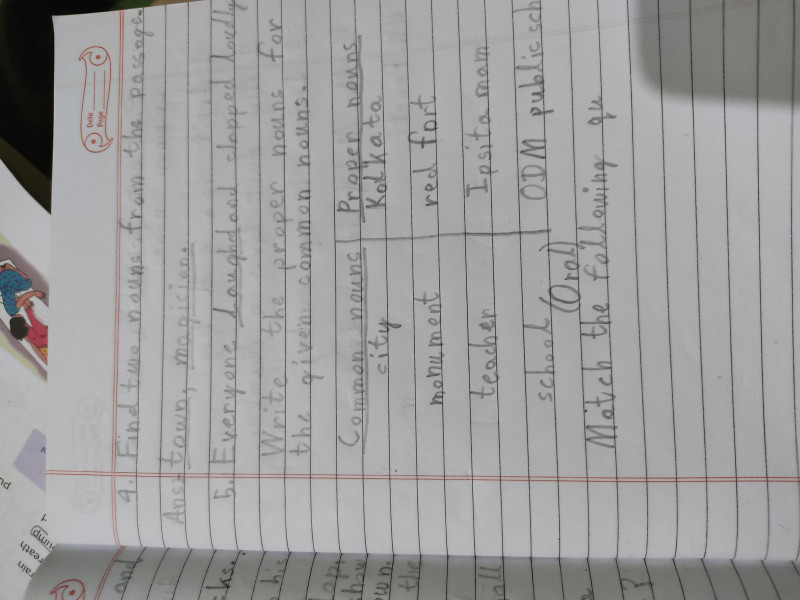 Date
Page
4. Find two nouns from the passage
Ans- town, magician.
5. Everyone laughed and clapped loudly
Write the proper nouns for
the given common nouns.
Common nouns Proper nouns
city Kolkata
monument red fort
teacher Ipsita mam
school ODM public sch
(Oral)
Match the following qu
and
cks.
his
how
own.
the
all
?